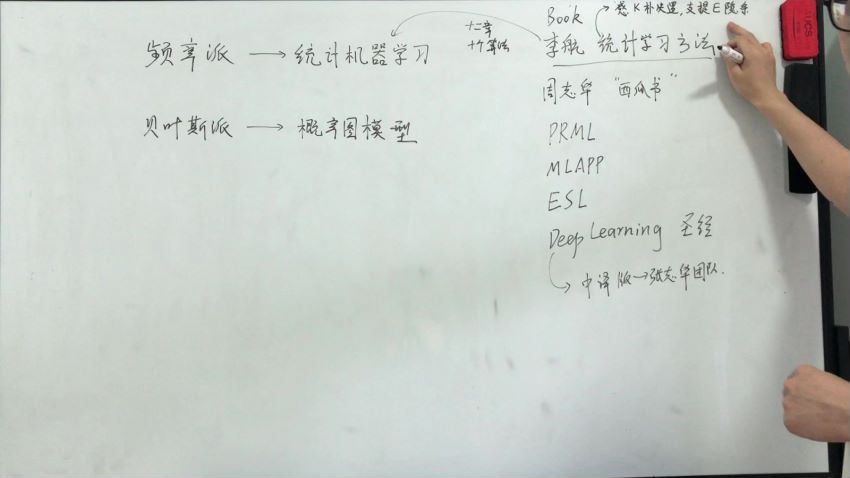 频率派 → 统计机器学习
贝叶斯派 → 概率图模型
十二章
十个算法
Book
感K朴决逻,支提E隐条
李航 统计学习方法
周志华 "西瓜书"
PRML
MLAPP
ESL
Deep Learning 圣经
中译版→张志华团队.